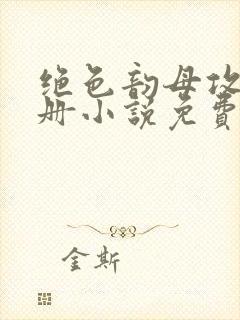 绝色韵母攻
册小说免费
金斯